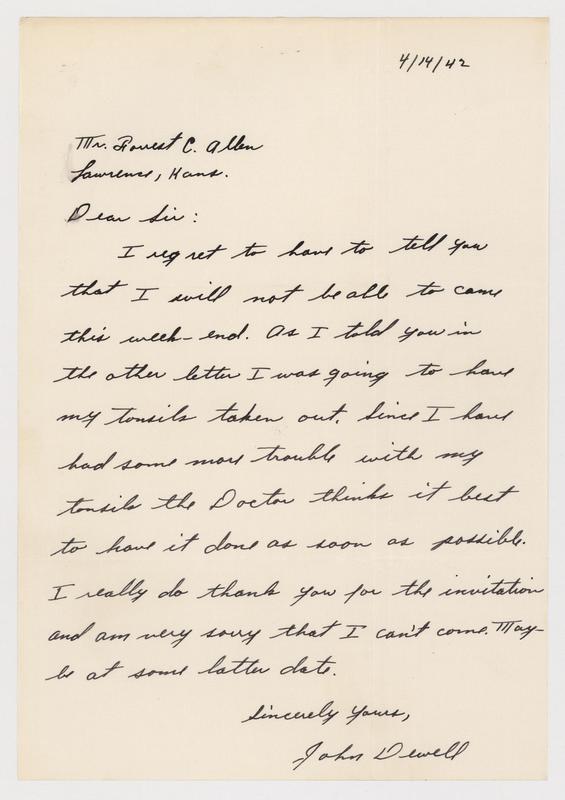 4/14/42
Mr. Forrest C. Allen
Lawrence, Kans.
Dear Sir:
I regret to have to tell you
that I will not be able to come
this week-end. As I told you in
the other letter I was going to have
my tonsils taken out. Since I have
had some more trouble with my
tonsils the Doctor thinks it best
to have it done as soon as possible.
I really do thank you for the invitation
and am very sorry that I can't come. May-
be at some latter date.
Sincerely Yours,
John Dewell